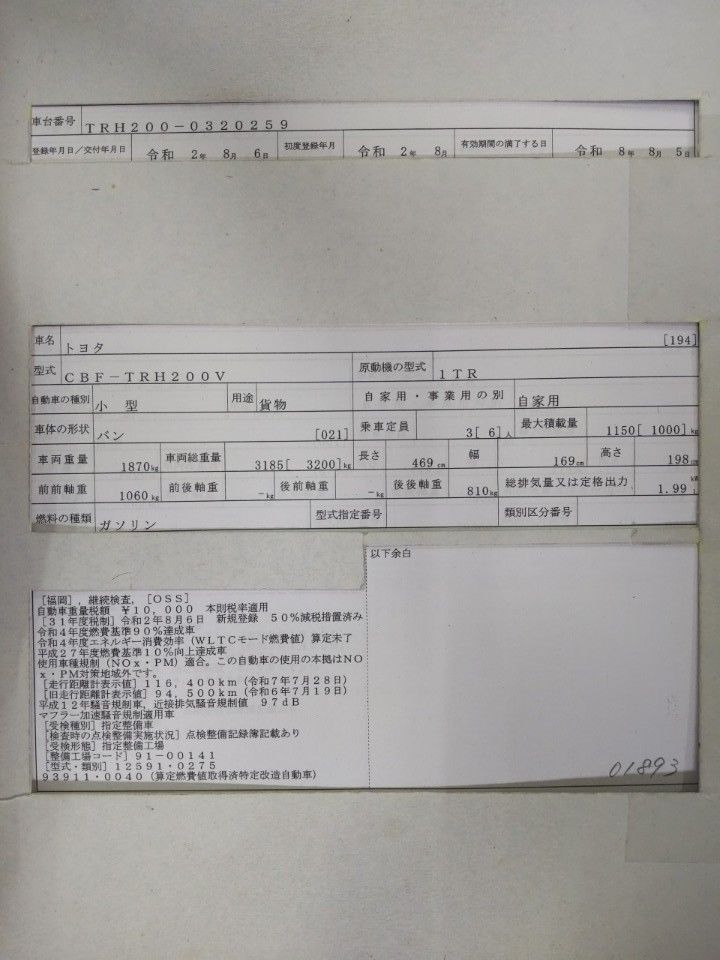 車台番号 TRH200-0320259
登録年月日/交付年月日 令和 2年 8月 6日 初度登録年月 令和 2年 8月 有効期間の満了する日 令和 8年 8月 5日
車名 トヨタ [194]
型式 CBF-TRH200V 原動機の型式 1TR
自動車の種別 小 型 用途 貨物 自家用・事業用の別 自家用
車体の形状 バン [021] 乗車定員 3[ 6]人 最大積載量 1150[ 1000]kg
車両重量 1870kg 車両総重量 3185[ 3200]kg 長さ 469cm 幅 169cm 高さ 198cm
前前軸重 1060kg 前後軸重 -kg 後前軸重 -kg 後後軸重 810kg 総排気量又は定格出力 1.99 kW L
燃料の種類 ガソリン 型式指定番号 類別区分番号
以下余白
[福岡],継続検査,[OSS]
自動車重量税額 ¥10,000 本則税率適用
[31年度税制]令和2年8月6日 新規登録 50%減税措置済み
令和4年度燃費基準90%達成車
令和4年度エネルギー消費効率(WLTCモード燃費値)算定未了
平成27年度燃費基準10%向上達成車
使用車種規制(NOx・PM)適合。この自動車の使用の本拠はNO
x・PM対策地域外です。
[走行距離計表示値]116,400km(令和7年7月28日)
[旧走行距離計表示値]94,500km(令和6年7月19日)
平成12年騒音規制車,近接排気騒音規制値 97dB
マフラー加速騒音規制適用車
[受検種別]指定整備車
[検査時の点検整備実施状況]点検整備記録簿記載あり
[受検形態]指定整備工場
[整備工場コード]91-00141
[型式・類別]12591・0275
93911・0040(算定燃費値取得済特定改造自動車)
01893